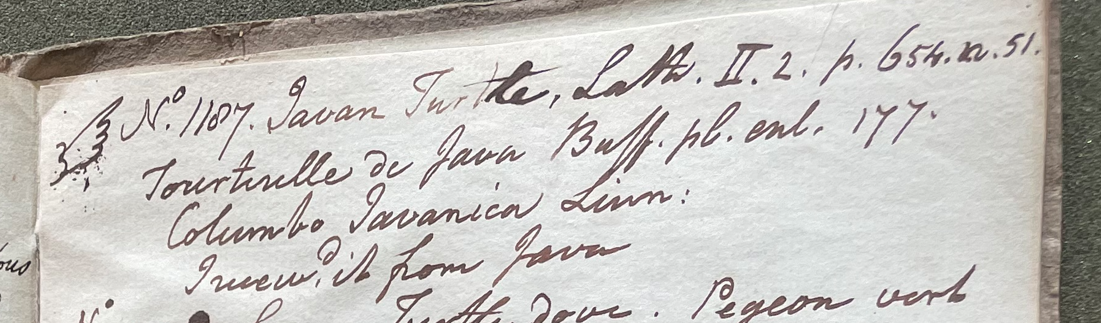 No. 1187. Javan Turtle, Lath. II. 2. p. 654. n. 51.
Tourterelle de Java Buff. pl. enl. 177.
Columba Javanica Linn:
I receiv'd it from Java
No Turtle dove. Pegeon vert